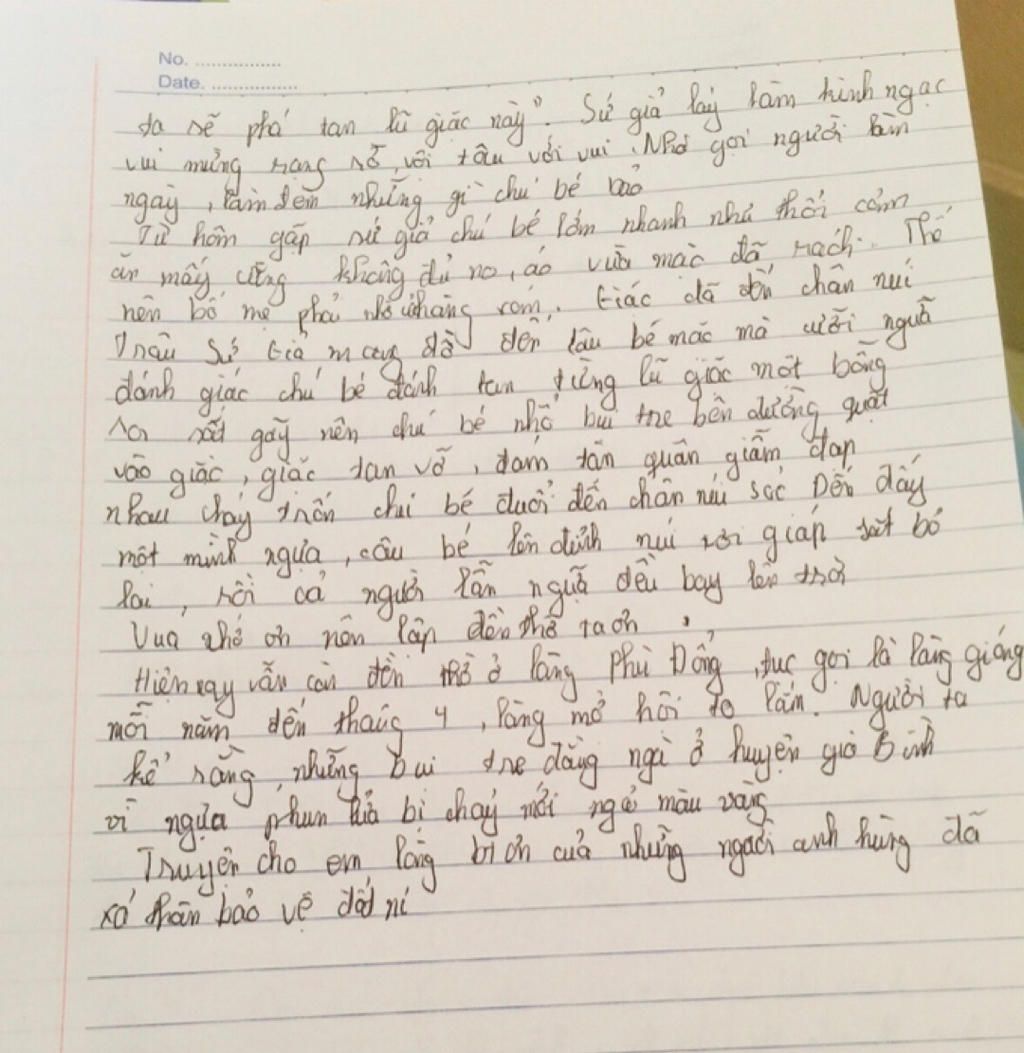 No. ................
Date. ................
ta sẽ phá tan lũ giặc này". Sứ giả lấy làm kinh ngạc
vui mừng rạng rỡ, vội tâu với vui. Nhà gọi người làm
ngay, làm đem những gì chú bé bảo
Từ hôm gặp sứ giả chú bé lớn nhanh như thổi cơm
ăn mấy cũng không đủ no, áo vừa mặc đã rách. Thế
nên bố mẹ phải nhờ hàng xóm. Giặc đã đến chân núi
Trâu Sứ Giả mang đồ đến cậu bé mặc mà cưỡi ngựa
đánh giặc chú bé đánh tan từng lũ giặc một bỗng
roi sắt gãy nên chú bé nhổ bụi tre bên đường quật
vào giặc, giặc tan vỡ, đám tàn quân giẫm đạp
nhau chạy trốn chú bé đuổi đến chân núi sóc Đến đấy
một mình ngựa, cậu bé lên đỉnh núi rồi giáp sắt bỏ
lại, rồi cả người lẫn ngựa đều bay lên trời
Vua nhớ ơn nên lập đền thờ
Hiện nay vẫn còn đền thờ ở làng Phù Đổng, tục gọi là làng gióng
mỗi năm đến tháng 4, làng mở hội to lắm. Người ta
kể rằng, những bụi tre đằng ngà ở huyện gia Bình
vì ngựa phun lửa bị cháy mới ngả màu vàng
Truyện cho em lòng bi ơn của những người anh hùng đã
xả thân bảo vệ đất